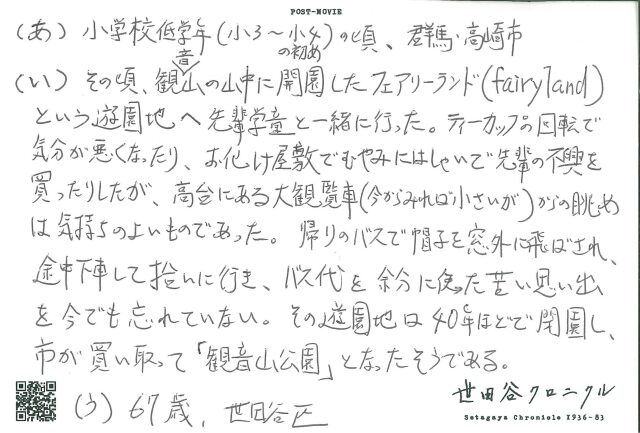 POST-MOVIE
(あ) 小学校低学年(小3～小4の初め)の頃、群馬・高崎市
(い) その頃、観音山の山中に開園したフェアリーランド(fairyland)
という遊園地へ先輩学童と一緒に行った。ティーカップの回転で
気分が悪くなったり、お化け屋敷でむやみにはしゃいで先輩の不興を
買ったりしたが、高台にある大観覧車(今からみれば小さいが)からの眺め
は気持ちのよいものであった。帰りのバスで帽子を窓外に飛ばされ、
途中下車して拾いに行き、バス代を余分に使った苦い思い出
を今でも忘れていない。その遊園地は40年ほどで閉園し、
市が買い取って「観音山公園」となったそうである。
(う) 67歳、世田谷正
世田谷クロニクル
Setagaya Chronicle 1936-83